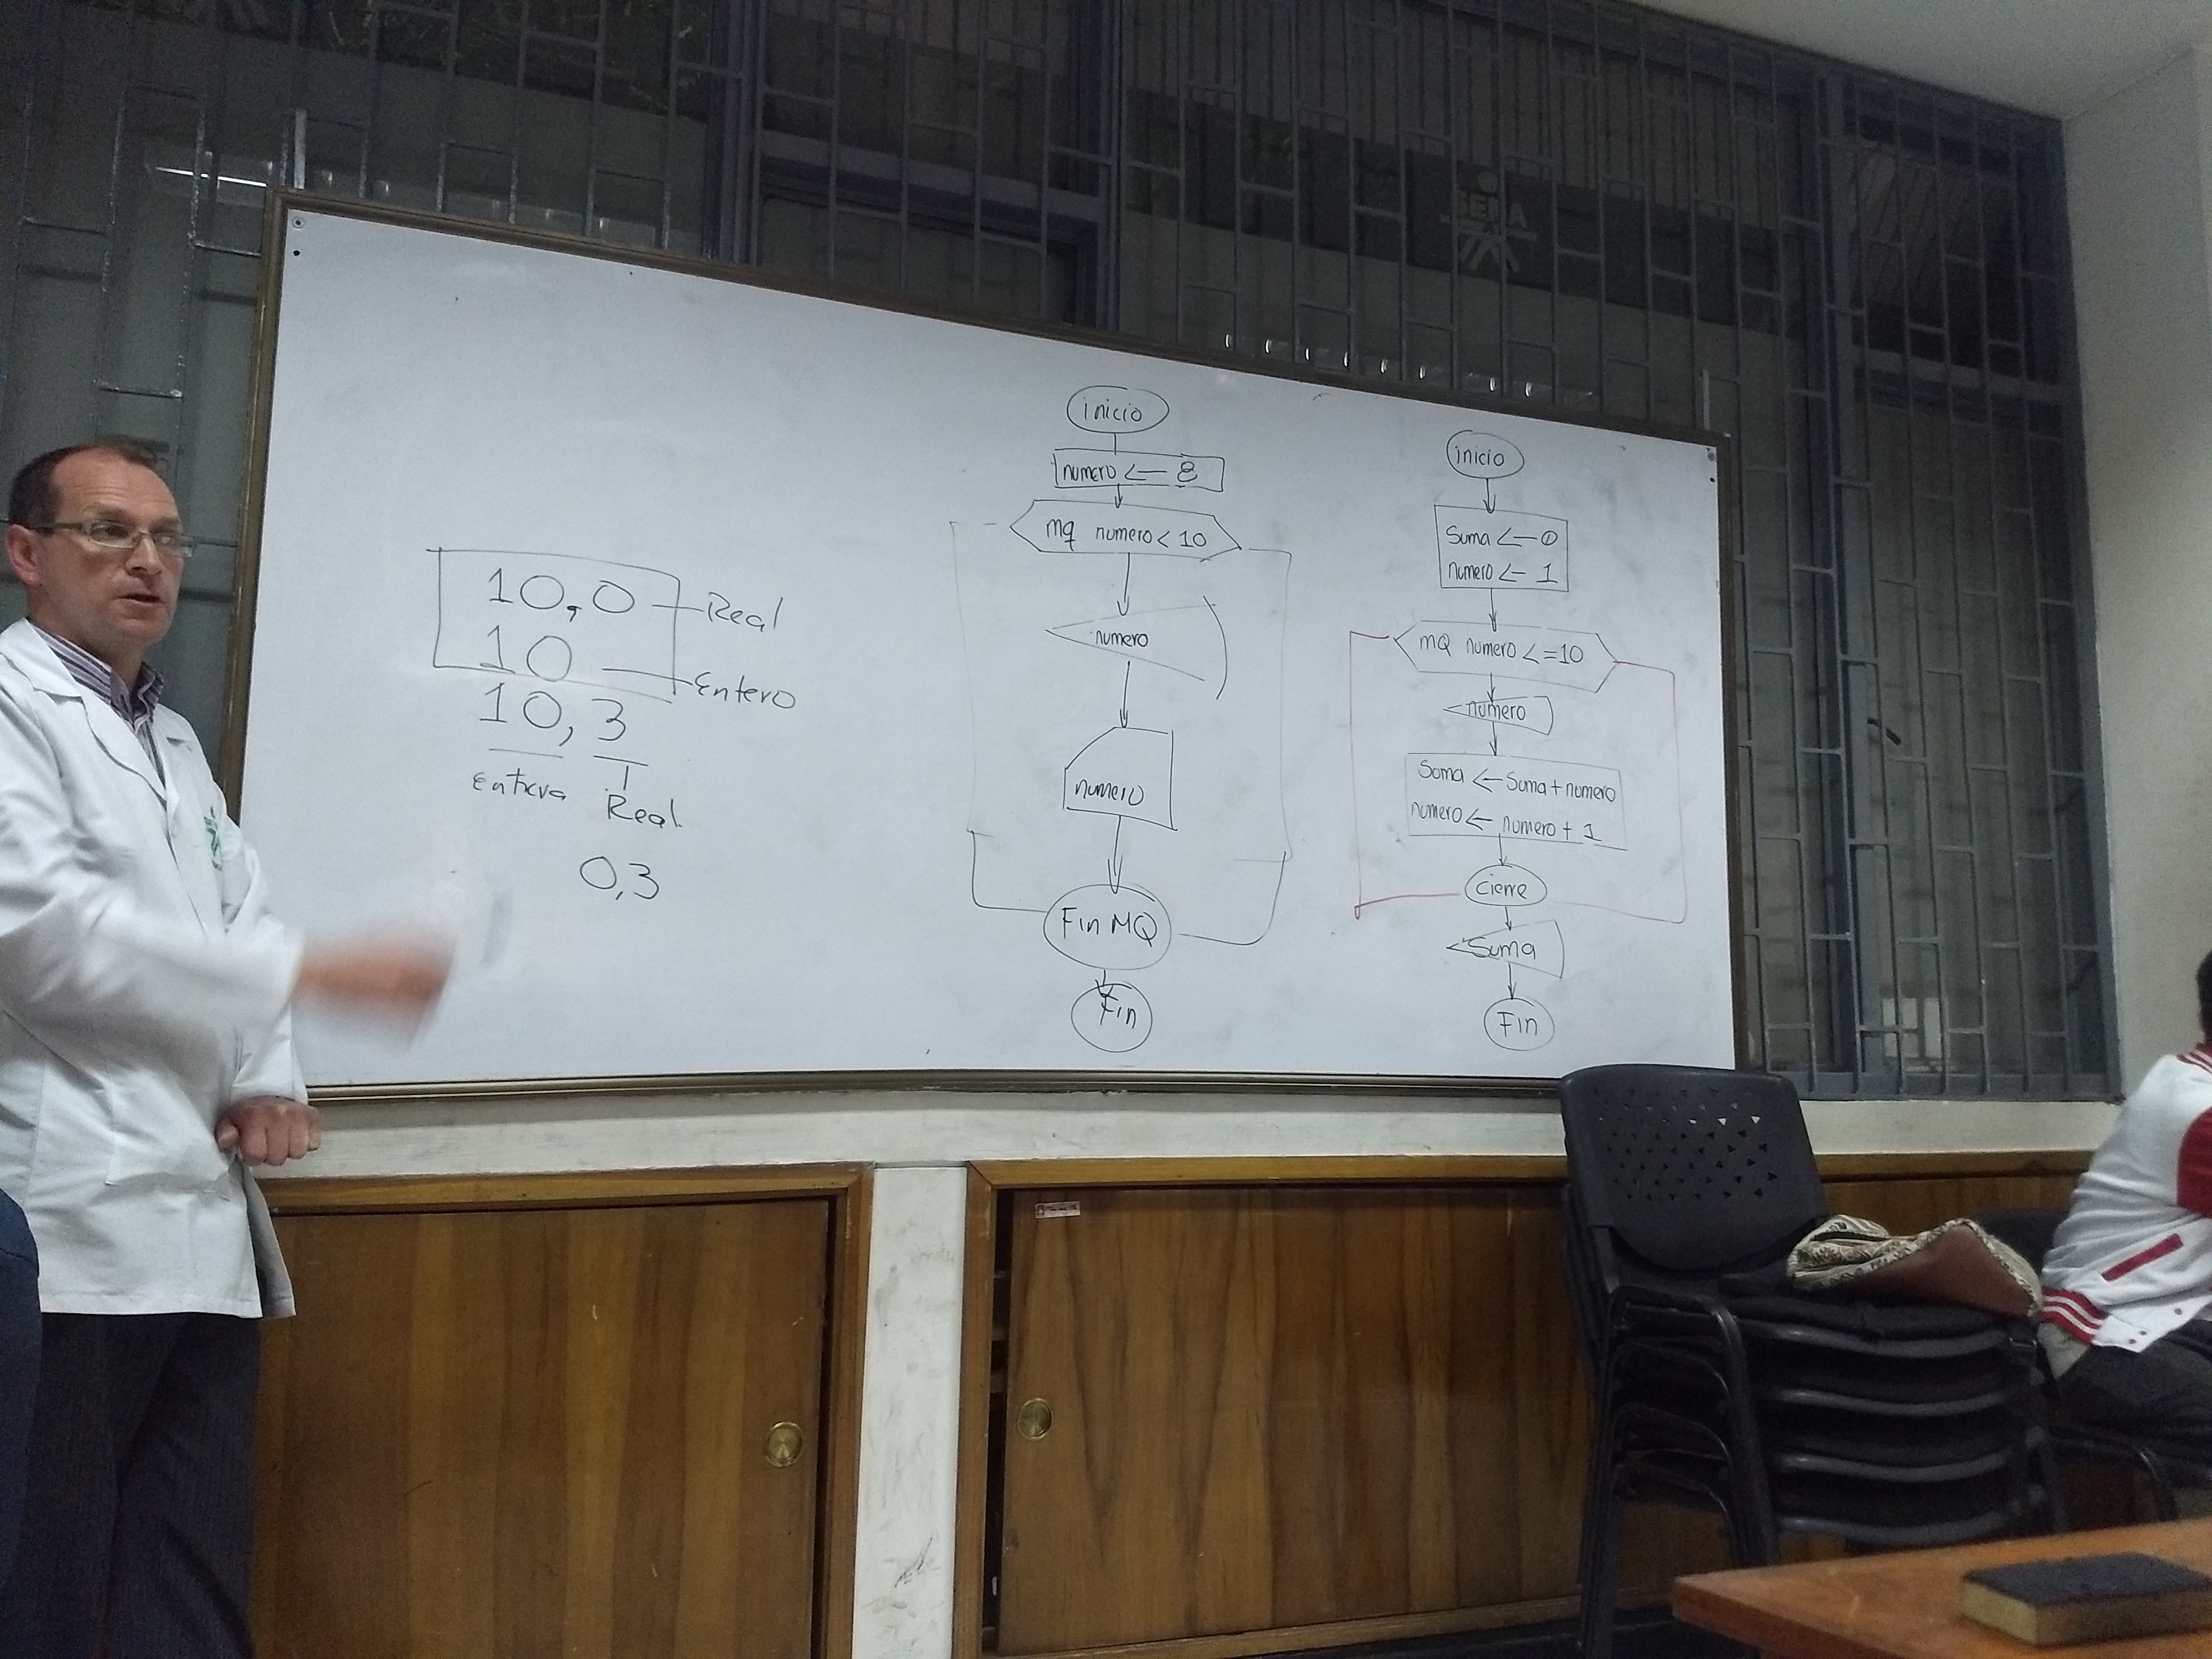 SENA
10,0 Real
10 Entero
10,3
entera Real
0,3
inicio
numero ← 8
mq numero < 10
numero
numero
Fin MQ
Fin
inicio
Suma ← 0
numero ← 1
MQ numero <=10
numero
Suma ← Suma + numero
numero ← numero + 1
cierre
Suma
Fin